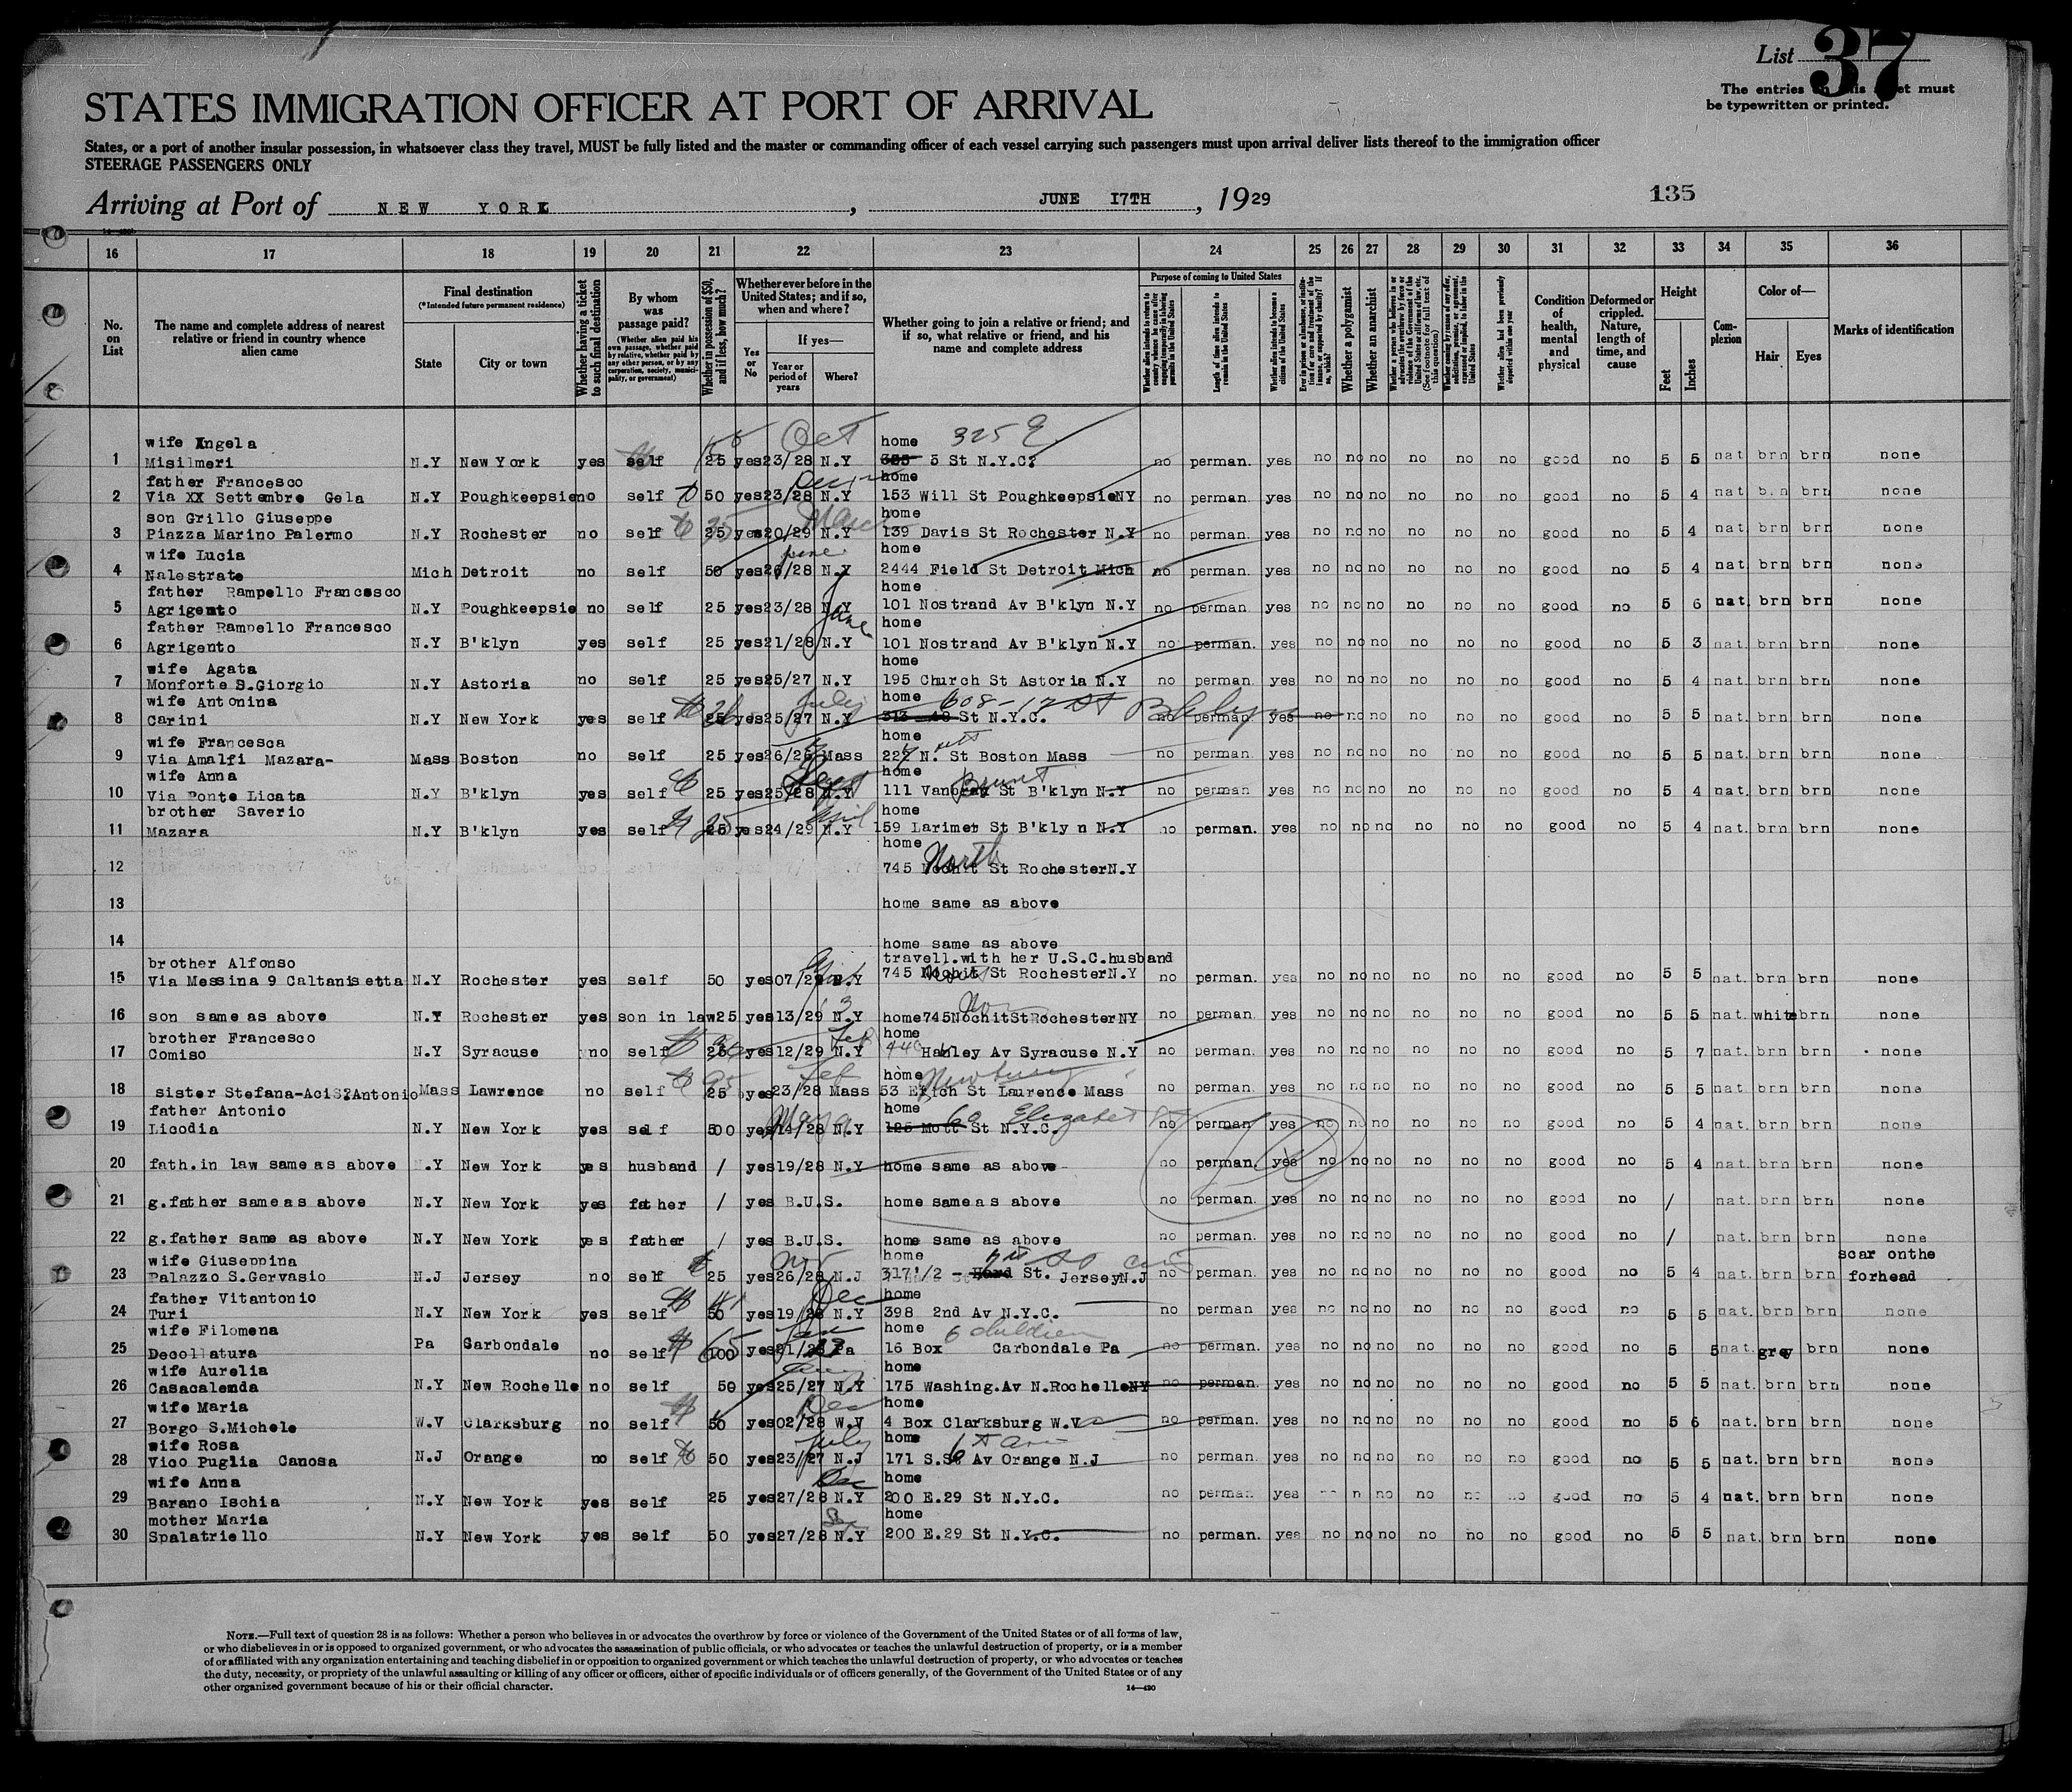 List 37
The entries on this sheet must
be typewritten or printed.
STATES IMMIGRATION OFFICER AT PORT OF ARRIVAL
States, or a port of another insular possession, in whatsoever class they travel, MUST be fully listed and the master or commanding officer of each vessel carrying such passengers must upon arrival deliver lists thereof to the immigration officer
STEERAGE PASSENGERS ONLY
Arriving at Port of NEW YORK, JUNE 17TH, 1929 135
16 17 18 19 20 21 22 23 24 25 26 27 28 29 30 31 32 33 34 35 36
No. on List
The name and complete address of nearest relative or friend in country whence alien came
Final destination
(*Intended future permanent residence)
State
City or town
Whether having a ticket to such final destination
By whom was passage paid?
(Whether alien paid his own passage, whether paid by relative, whether paid by any other person, or by any corporation, society, municipality, or government)
Whether in possession of $50, and if less, how much?
Whether ever before in the United States; and if so, when and where?
Yes or No
If yes—
Year or period of years
Where?
Whether going to join a relative or friend; and if so, what relative or friend, and his name and complete address
Purpose of coming to United States
Length of time alien intends to remain in the United States
Whether alien intends to become a citizen of the United States
Whether a polygamist
Whether an anarchist
Condition of health, mental and physical
Deformed or crippled. Nature, length of time, and cause
Height
Feet
Inches
Complexion
Color of—
Hair
Eyes
Marks of identification
wife Angela home 325 E
1 Misilmeri N.Y New York yes self 25 yes 23/28 N.Y Oct 5 St N.Y.C. no perman. yes no no no no no no good no 5 5 nat brn brn none
father Francesco home
2 Via XX Settembre Gela N.Y Poughkeepsie no self 50 yes 23/28 N.Y 153 Will St Poughkeepsie NY no perman. yes no no no no no no good no 5 4 nat. brn brn none
son Grillo Giuseppe home
3 Piazza Marino Palermo N.Y Rochester no self 25 yes 20/29 N.Y March 139 Davis St Rochester N.Y no perman. yes no no no no no no good no 5 4 nat. brn brn none
wife Lucia home
4 Nalestrate Mich Detroit no self 50 yes 26/28 N.Y 2444 Field St Detroit Mich no perman. yes no no no no no no good no 5 4 nat. brn brn none
father Rampello Francesco home
5 Agrigento N.Y Poughkeepsie no self 25 yes 23/28 N.Y 101 Nostrand Av B'klyn N.Y no perman. yes no no no no no no good no 5 6 nat. brn brn none
father Rampello Francesco home
6 Agrigento N.Y B'klyn yes self 25 yes 21/28 N.Y June 101 Nostrand Av B'klyn N.Y no perman. yes no no no no no no good no 5 3 nat. brn brn none
wife Agata home
7 Monforte S.Giorgio N.Y Astoria no self 25 yes 25/27 N.Y 195 Church St Astoria N.Y no perman. yes no no no no no no good no 5 4 nat. brn brn none
wife Antonina home 608-12 St Bklyn
8 Carini N.Y New York yes self 25 yes 25/27 N.Y July 313 48 St N.Y.C. no perman yes no no no no no no good no 5 5 nat. brn brn none
wife Francesca home
9 Via Amalfi Mazara- Mass Boston no self 25 yes 26/28 Mass 227 N. St Boston Mass no perman. yes no no no no no no good no 5 5 nat. brn brn none
wife Anna home
10 Via Ponte Licata N.Y B'klyn yes self 25 yes 25/28 N.Y 111 Van Brunt St B'klyn N.Y no perman yes no no no no no no good no 5 4 nat. brn brn none
brother Saverio home
11 Mazara N.Y B'klyn yes self 25 yes 24/29 N.Y April 159 Larimer St B'klyn N.Y no perman. yes no no no no no no good no 5 4 nat. brn brn none
home
12 745 North St Rochester N.Y
13 home same as above
14 home same as above
travell.with her U.S.C.husband
brother Alfonso
15 Via Messina 9 Caltanisetta N.Y Rochester yes self 50 yes 07/28 N.Y 745 Nochit St Rochester N.Y no perman. yes no no no no no no good no 5 5 nat. brn brn none
16 son same as above N.Y Rochester yes son in law 25 yes 13/29 N.Y home 745 Nochit St Rochester NY no perman. yes no no no no no no good no 5 5 nat. white brn none
brother Francesco home
17 Comiso N.Y Syracuse no self 25 yes 12/29 N.Y Feb 440 Hawley Av Syracuse N.Y no perman. yes no no no no no no good no 5 7 nat. brn brn none
home Newbury
18 sister Stefana-Aci S?Antonio Mass Lawrence no self 25 yes 23/28 Mass Feb 53 Erich St Laurence Mass no perman. yes no no no no no no good no 5 5 nat. brn brn none
father Antonio home 60 Elizabet
19 Licodia N.Y New York yes self 500 yes 14/28 N.Y 125 Mott St N.Y.C. no perman yes no no no no no no good no 5 4 nat. brn brn none
20 fath.in law same as above N.Y New York yes husband / yes 19/28 N.Y home same as above no perman. yes no no no no no no good no 5 4 nat. brn brn none
21 g.father same as above N.Y New York yes father / yes B.U.S. home same as above no perman. yes no no no no no no good no / nat. brn brn none
22 g.father same as above N.Y New York yes father / yes B.U.S. home same as above no perman. yes no no no no no no good no / nat. brn brn none
wife Giuseppina home scar on the
23 Palazzo S.Gervasio N.J Jersey no self 25 yes 26/28 N.J Nov 317 1/2 - St. Jersey N.J no perman. yes no no no no no no good no 5 4 nat. brn brn forhead
father Vitantonio home
24 Turi N.Y New York yes self 50 yes 19/28 N.Y Dec 398 2nd Av N.Y.C. no perman yes no no no no no no good no 5 5 nat. brn brn none
wife Filomena home 6 children
25 Decollatura Pa Carbondale no self 100 yes 21/28 Pa 16 Box Carbondale Pa no perman. yes no no no no no no good no 5 5 nat. grey brn none
wife Aurelia home
26 Casacalenda N.Y New Rochelle no self 50 yes 25/27 N.Y 175 Washing.Av N.Rochelle NY no perman. yes no no no no no no good no 5 5 nat. brn brn none
wife Maria home
27 Borgo S.Michele W.V Clarksburg no self 50 yes 02/28 W.V Dec 4 Box Clarksburg W.V no perman. yes no no no no no no good no 5 6 nat. brn brn none
wife Rosa home
28 Vico Puglia Canosa N.J Orange no self 50 yes 23/27 N.J July 171 S. Av Orange N.J no perman. yes no no no no no no good no 5 5 nat. brn brn none
wife Anna home
29 Barano Ischia N.Y New York yes self 25 yes 27/28 N.Y Dec 200 E.29 St N.Y.C. no perman. yes no no no no no good no 5 4 nat. brn brn none
mother Maria home
30 Spalatriello N.Y New York yes self 50 yes 27/28 N.Y 200 E.29 St N.Y.C. no perman. yes no no no no no no good no 5 5 nat. brn brn none
NOTE.—Full text of question 28 is as follows: Whether a person who believes in or advocates the overthrow by force or violence of the Government of the United States or of all forms of law,
or who disbelieves in or is opposed to organized government, or who advocates the assassination of public officials, or who advocates or teaches the unlawful destruction of property, or is a member
of or affiliated with any organization entertaining and teaching disbelief in or opposition to organized government or which teaches the unlawful destruction of property, or who advocates or teaches
the duty, necessity, or propriety of the unlawful assaulting or killing of any officer or officers, either of specific individuals or of officers generally, of the Government of the United States or of any
other organized government because of his or their official character.
14—430